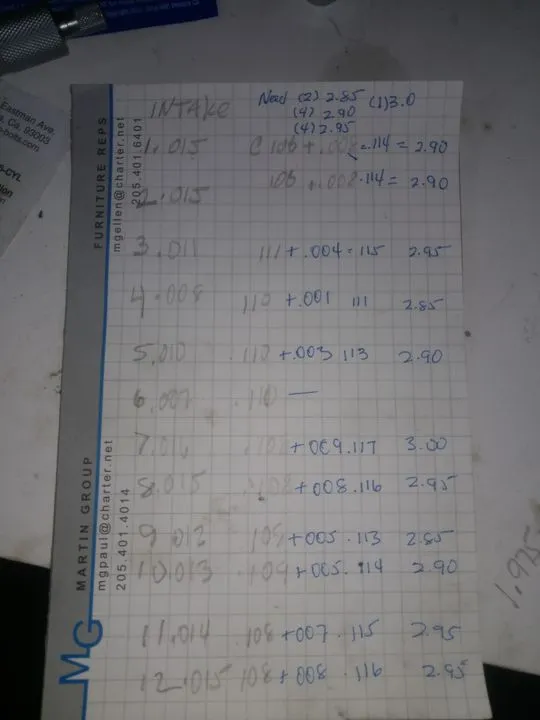 INTAKE
Need (2) 2.85 (1) 3.0
(4) 2.90
(4) 2.95
1 .015 .114 = 2.90
2 .015 +.008 .114 = 2.90
3 .011 111 + .004 = 115 2.95
4 .008 110 +.001 111 2.85
5 .010 110 +.003 113 2.90
6 .007 .110 —
7 +009 .117 3.00
8 .015 +008 .116 2.95
9 .013 +005 .113 2.85
10 .013 .109 +005 .114 2.90
11 .014 108 +007 .115 2.95
12 .015 108 + 008 .116 2.95
FURNITURE REPS
mgellen@charter.net
205.401.6401
MARTIN GROUP
mgpaul@charter.net
205.401.4014
MG
Eastman Ave.
Ca. 93003
-bolts.com
-CYL
1.975